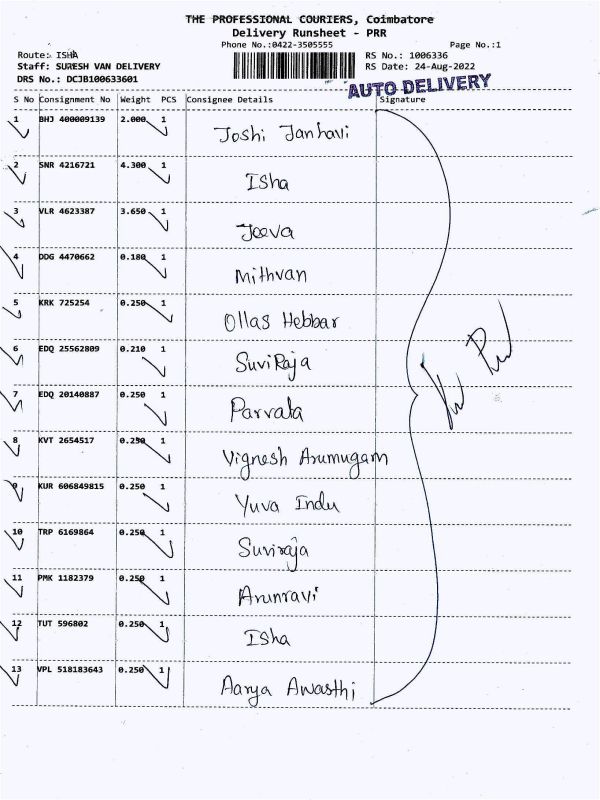 THE PROFESSIONAL COURIERS, Coimbatore
Delivery Runsheet - PRR
Phone No.:0422-3505555 Page No.:1
Route: ISHA RS No.: 1006336
Staff: SURESH VAN DELIVERY RS Date: 24-Aug-2022
DRS No.: DCJB100633601 AUTO DELIVERY
S No Consignment No Weight PCS Consignee Details Signature
1 BHJ 400009139 2.000 1 Joshi Janhavi
2 SNR 4216721 4.300 1 Isha
3 VLR 4623387 3.650 1 Jeeva
4 DDG 4470662 0.180 1 Mithvan
5 KRK 725254 0.250 1 Ollas Hebbar
6 EDQ 25562809 0.210 1 SuviRaja
7 EDQ 20140887 0.250 1 Parvata
8 KVT 2654517 0.250 1 Vignesh Arumugam
9 KUR 606849815 0.250 1 Yuva Indu
10 TRP 6169864 0.250 1 Suviraja
11 PMK 1182379 0.250 1 Arunravi
12 TUT 596802 0.250 1 Isha
13 VPL 518183643 0.250 1 Aarya Awasthi